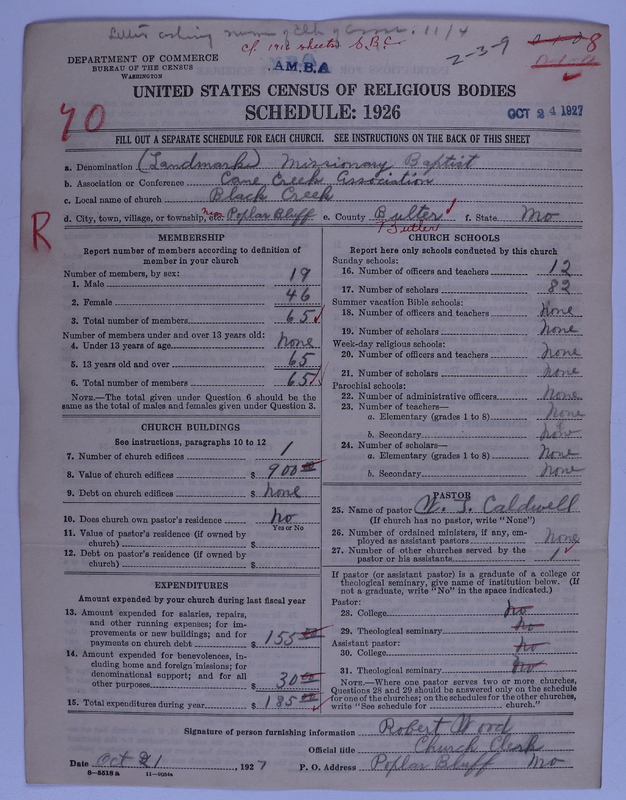 11/4
cf. 1916 sheets S.B.C.
2-3-9
8
DEPARTMENT OF COMMERCE
BUREAU OF THE CENSUS
WASHINGTON
A.M.B.A
UNITED STATES CENSUS OF RELIGIOUS BODIES
SCHEDULE: 1926
OCT 24 1927
40
FILL OUT A SEPARATE SCHEDULE FOR EACH CHURCH. SEE INSTRUCTIONS ON THE BACK OF THIS SHEET
a. Denomination (Landmark) Missionary Baptist
b. Association or Conference Cane Creek Association
c. Local name of church Black Creek
d. City, town, village, or township, etc. near Poplar Bluff e. County Bulter f. State Mo
Butler
R
MEMBERSHIP
Report number of members according to definition of
member in your church
Number of members, by sex:
1. Male 19
2. Female 46
3. Total number of members 65
Number of members under and over 13 years old:
4. Under 13 years of age None
5. 13 years old and over 65
6. Total number of members 65
NOTE.—The total given under Question 6 should be the
same as the total of males and females given under Question 3.
CHURCH BUILDINGS
See instructions, paragraphs 10 to 12
7. Number of church edifices 1
8. Value of church edifices $ 900 00
9. Debt on church edifices $ None
10. Does church own pastor's residence No
Yes or No
11. Value of pastor's residence (if owned by
church) $
12. Debt on pastor's residence (if owned by
church) $
EXPENDITURES
Amount expended by your church during last fiscal year
13. Amount expended for salaries, repairs,
and other running expenses; for im-
provements or new buildings; and for
payments on church debt $ 155 00
14. Amount expended for benevolences, in-
cluding home and foreign missions; for
denominational support; and for all
other purposes $ 30 00
15. Total expenditures during year $ 185 00
CHURCH SCHOOLS
Report here only schools conducted by this church
Sunday schools:
16. Number of officers and teachers 12
17. Number of scholars 82
Summer vacation Bible schools:
18. Number of officers and teachers None
19. Number of scholars None
Week-day religious schools:
20. Number of officers and teachers None
21. Number of scholars None
Parochial schools:
22. Number of administrative officers None
23. Number of teachers—
a. Elementary (grades 1 to 8) None
b. Secondary None
24. Number of scholars—
a. Elementary (grades 1 to 8) None
b. Secondary None
PASTOR
25. Name of pastor W. S. Caldwell
(If church has no pastor, write "None")
26. Number of ordained ministers, if any, em-
ployed as assistant pastors None
27. Number of other churches served by the
pastor or his assistants 1
If pastor (or assistant pastor) is a graduate of a college or
theological seminary, give name of institution below. (If
not a graduate, write "No" in the space indicated.)
Pastor:
28. College No
29. Theological seminary No
Assistant pastor:
30. College No
31. Theological seminary No
NOTE.—Where one pastor serves two or more churches,
Questions 28 and 29 should be answered only on the schedule
for one of the churches; on the schedules for the other churches,
write "See schedule for church."
Signature of person furnishing information Robert Wood
Official title Church Clerk
Date Oct 21, 1927 P. O. Address Poplar Bluff Mo
8-5518a 11-9034a